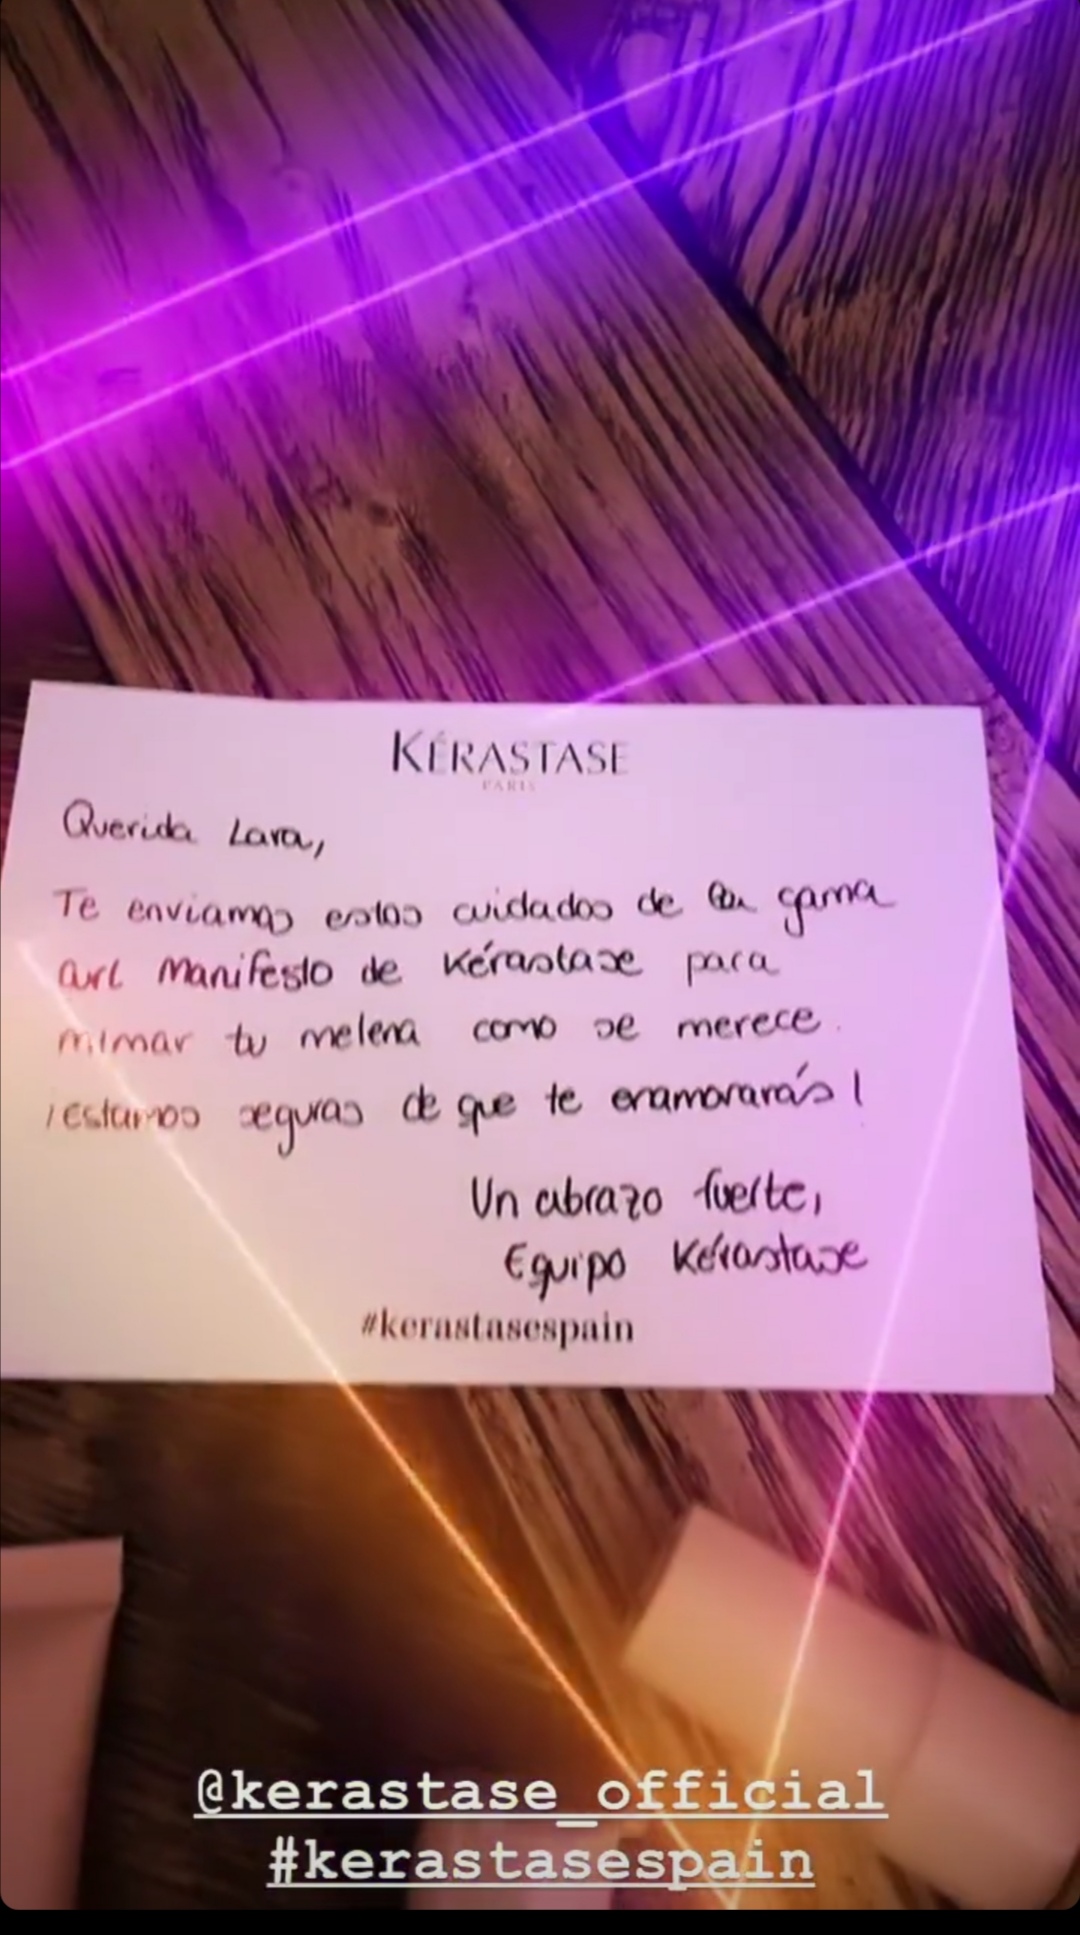 KÉRASTASE
PARIS
Querida Lara,
Te enviamos estos cuidados de la gama
Curl Manifesto de Kérastase para
mimar tu melena como se merece.
¡Estamos seguras de que te enamorarás!
Un abrazo fuerte,
Equipo Kérastase
#kerastasespain
@kerastase_official
#kerastasespain